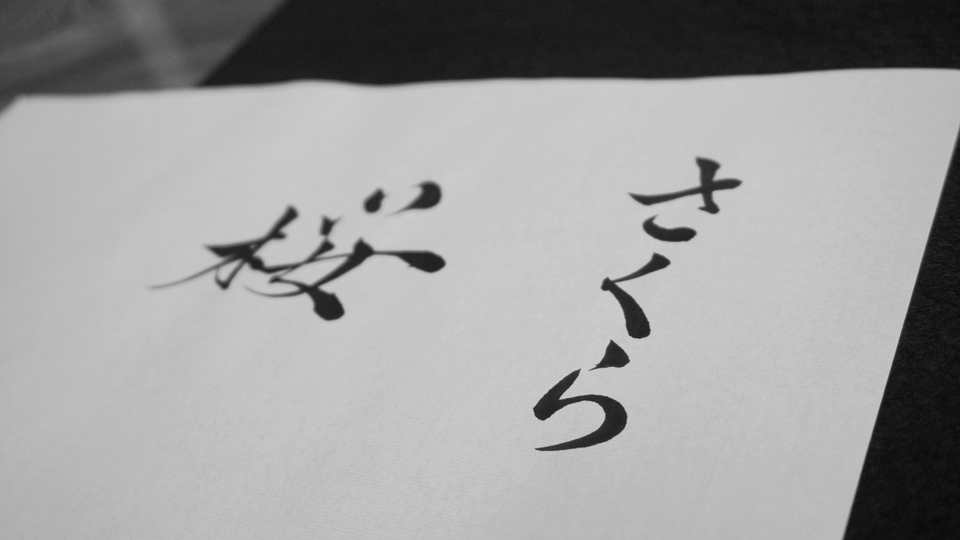 さくら
桜